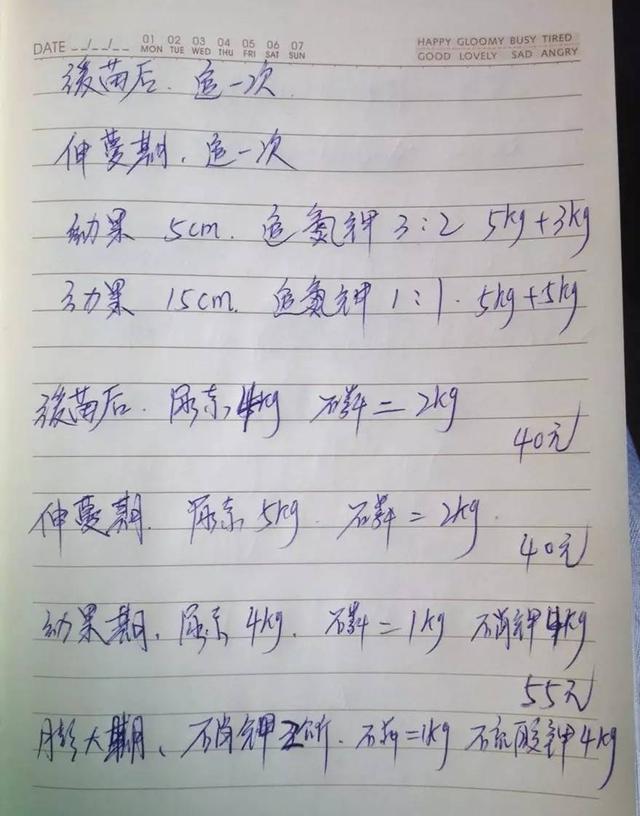 DATE __/__/__ 01 MON 02 TUE 03 WED 04 THU 05 FRI 06 SAT 07 SUN HAPPY GLOOMY BUSY TIRED
GOOD LOVELY SAD ANGRY
缓苗后. 追一次
伸蔓期. 追一次
幼果 5cm. 追氮钾 3:2 5kg+3kg
幼果 15cm. 追氮钾 1:1. 5kg+5kg
缓苗后. 尿素 4kg 石磷二 2kg
40元
伸蔓期. 尿素 5kg. 石磷二 2kg.
40元
幼果期. 尿素 4kg. 石磷二 1kg 石肖钾 4kg
55元
膨大期、石肖钾 石磷二 1kg 石流酸钾 4kg